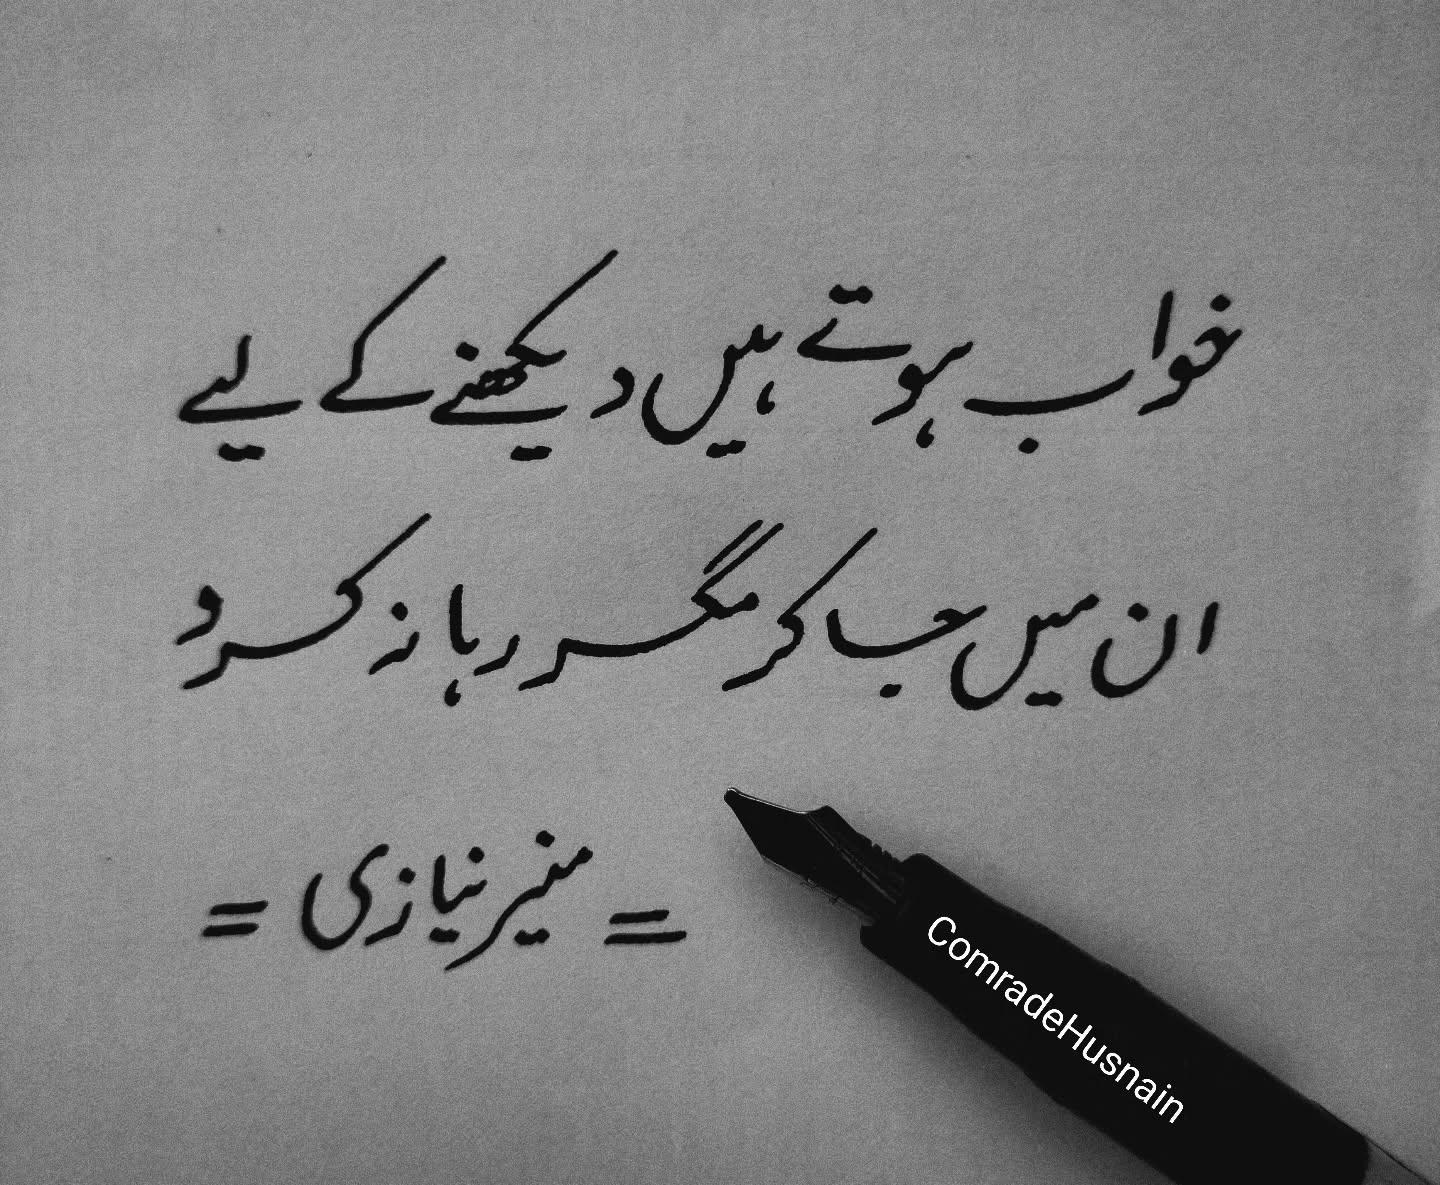 خواب ہوتے ہیں دیکھنے کے لیے
ان میں جا کر مگر رہا نہ کرو
= منیر نیازی =
ComradeHusnain